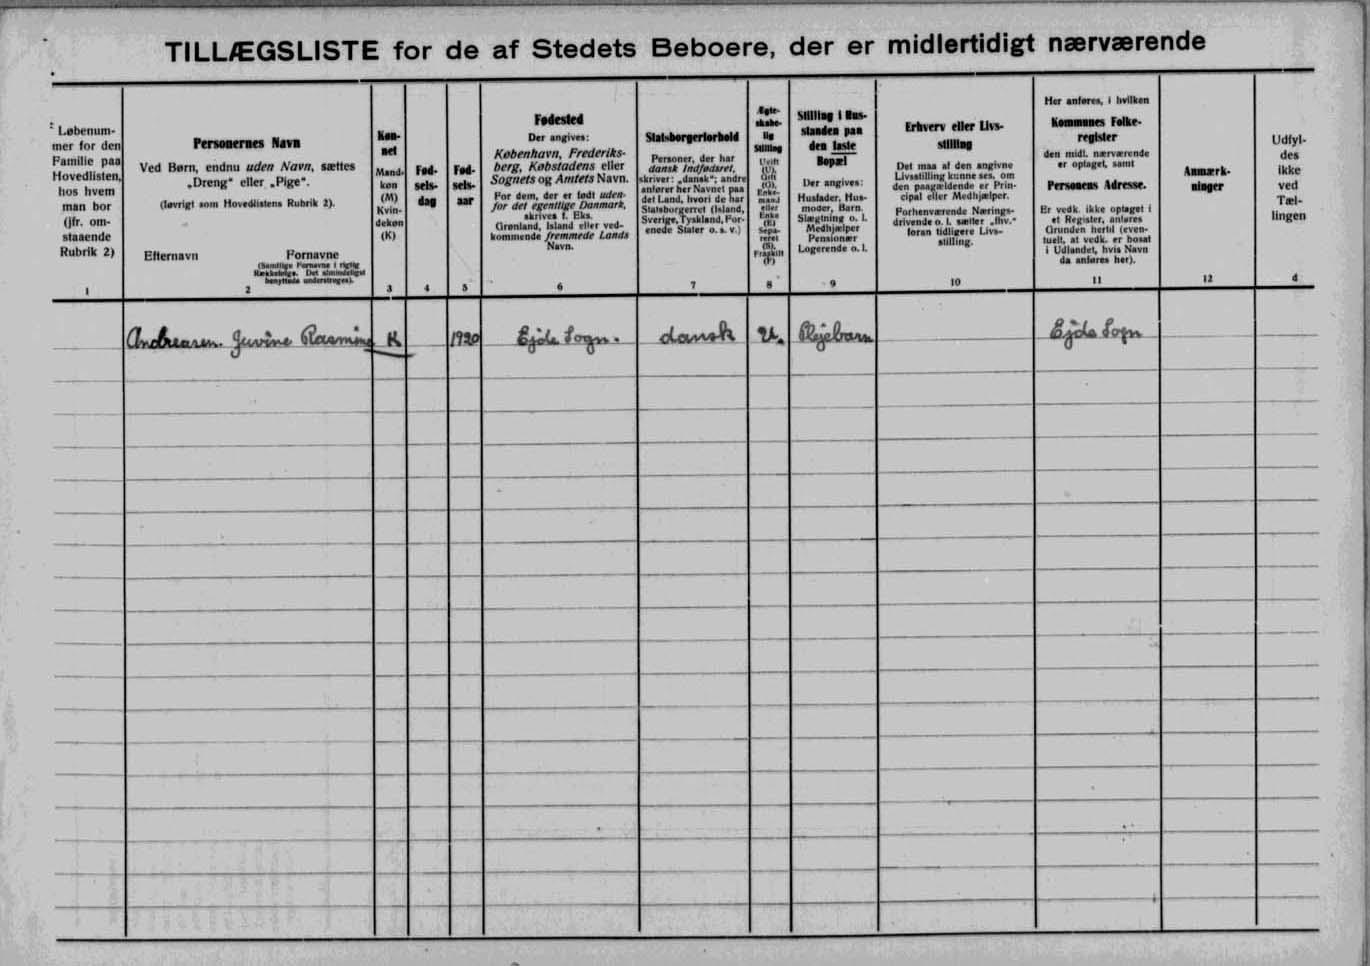 TILLÆGSLISTE for de af Stedets Beboere, der er midlertidigt nærværende
Løbenum-
mer for den
Familie paa
Hovedlisten,
hos hvem
man bor
(jfr. om-
staaende
Rubrik 2)
1
Personernes Navn
Ved Børn, endnu uden Navn, sættes
„Dreng" eller „Pige".
(Iøvrigt som Hovedlistens Rubrik 2).
Efternavn Fornavne
(Samtlige Fornavne i rigtig
Rækkefølge. Det almindeligst
benyttede understreges).
2
Køn-
net
Mand-
køn
(M)
Kvin-
dekøn
(K)
3
Fød-
sels-
dag
4
Fød-
sels-
aar
5
Fødested
Der angives:
København, Frederiks-
berg, Købstadens eller
Sognets og Amtets Navn.
For dem, der er født uden-
for det egentlige Danmark,
skrives f. Eks.
Grønland, Island eller ved-
kommende fremmede Lands
Navn.
6
Statsborgerforhold
Personer, der har
dansk Indfødsret,
skriver: „dansk"; andre
anfører her Navnet paa
det Land, hvori de har
Statsborgerret (Island,
Sverige, Tyskland, For-
enede Stater o. s. v.)
7
Ægte-
skabe-
lig
Stilling
Ugift
(U),
Gift
(G),
Enke-
mand
eller
Enke
(E)
Sepa-
reret
(S),
Fraskilt
(F)
8
Stilling i Hus-
standen paa
den faste
Bopæl
Der angives:
Husfader, Hus-
moder, Barn,
Slægtning o. l.
Medhjælper
Pensionær
Logerende o. l.
9
Erhverv eller Livs-
stilling
Det maa af den angivne
Livsstilling kunne ses, om
den paagældende er Prin-
cipal eller Medhjælper.
Forhenværende Nærings-
drivende o. l. sætter „fhv."
foran tidligere Livs-
stilling.
10
Her anføres, i hvilken
Kommunes Folke-
register
den midl. nærværende
er optaget, samt
Personens Adresse.
Er vedk. ikke optaget i
et Register, anføres
Grunden hertil (even-
tuelt, at vedk. er bosat
i Udlandet, hvis Navn
da anføres her).
11
Anmærk-
ninger
12
Udfyl-
des
ikke
ved
Tæl-
lingen
d
Andreasen Juvine Rasmine K 1920 Ejde Sogn. dansk U. Plejebarn Ejde Sogn